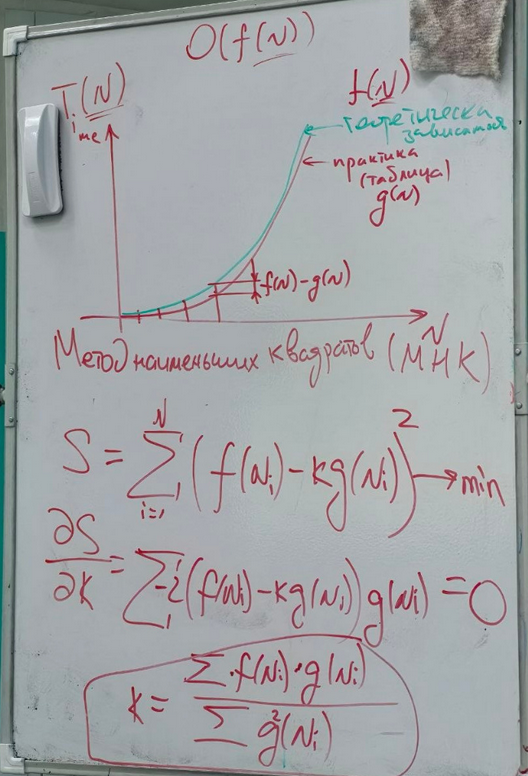 O(f(N))
T(N)
ime
f(N)
Теоретическа
зависимос
практика
(таблица)
g(N)
f(N)-g(N)
N
Метод наименьших квадратов (МНК)
S = ∑ᵢ₌₁ᴺ (f(Nᵢ) - kg(Nᵢ))² → min
∂S/∂K = ∑ -2(f(Nᵢ) - kg(Nᵢ)) g(Nᵢ) = 0
k = ∑·f(Nᵢ)·g(Nᵢ) / ∑ g²(Nᵢ)